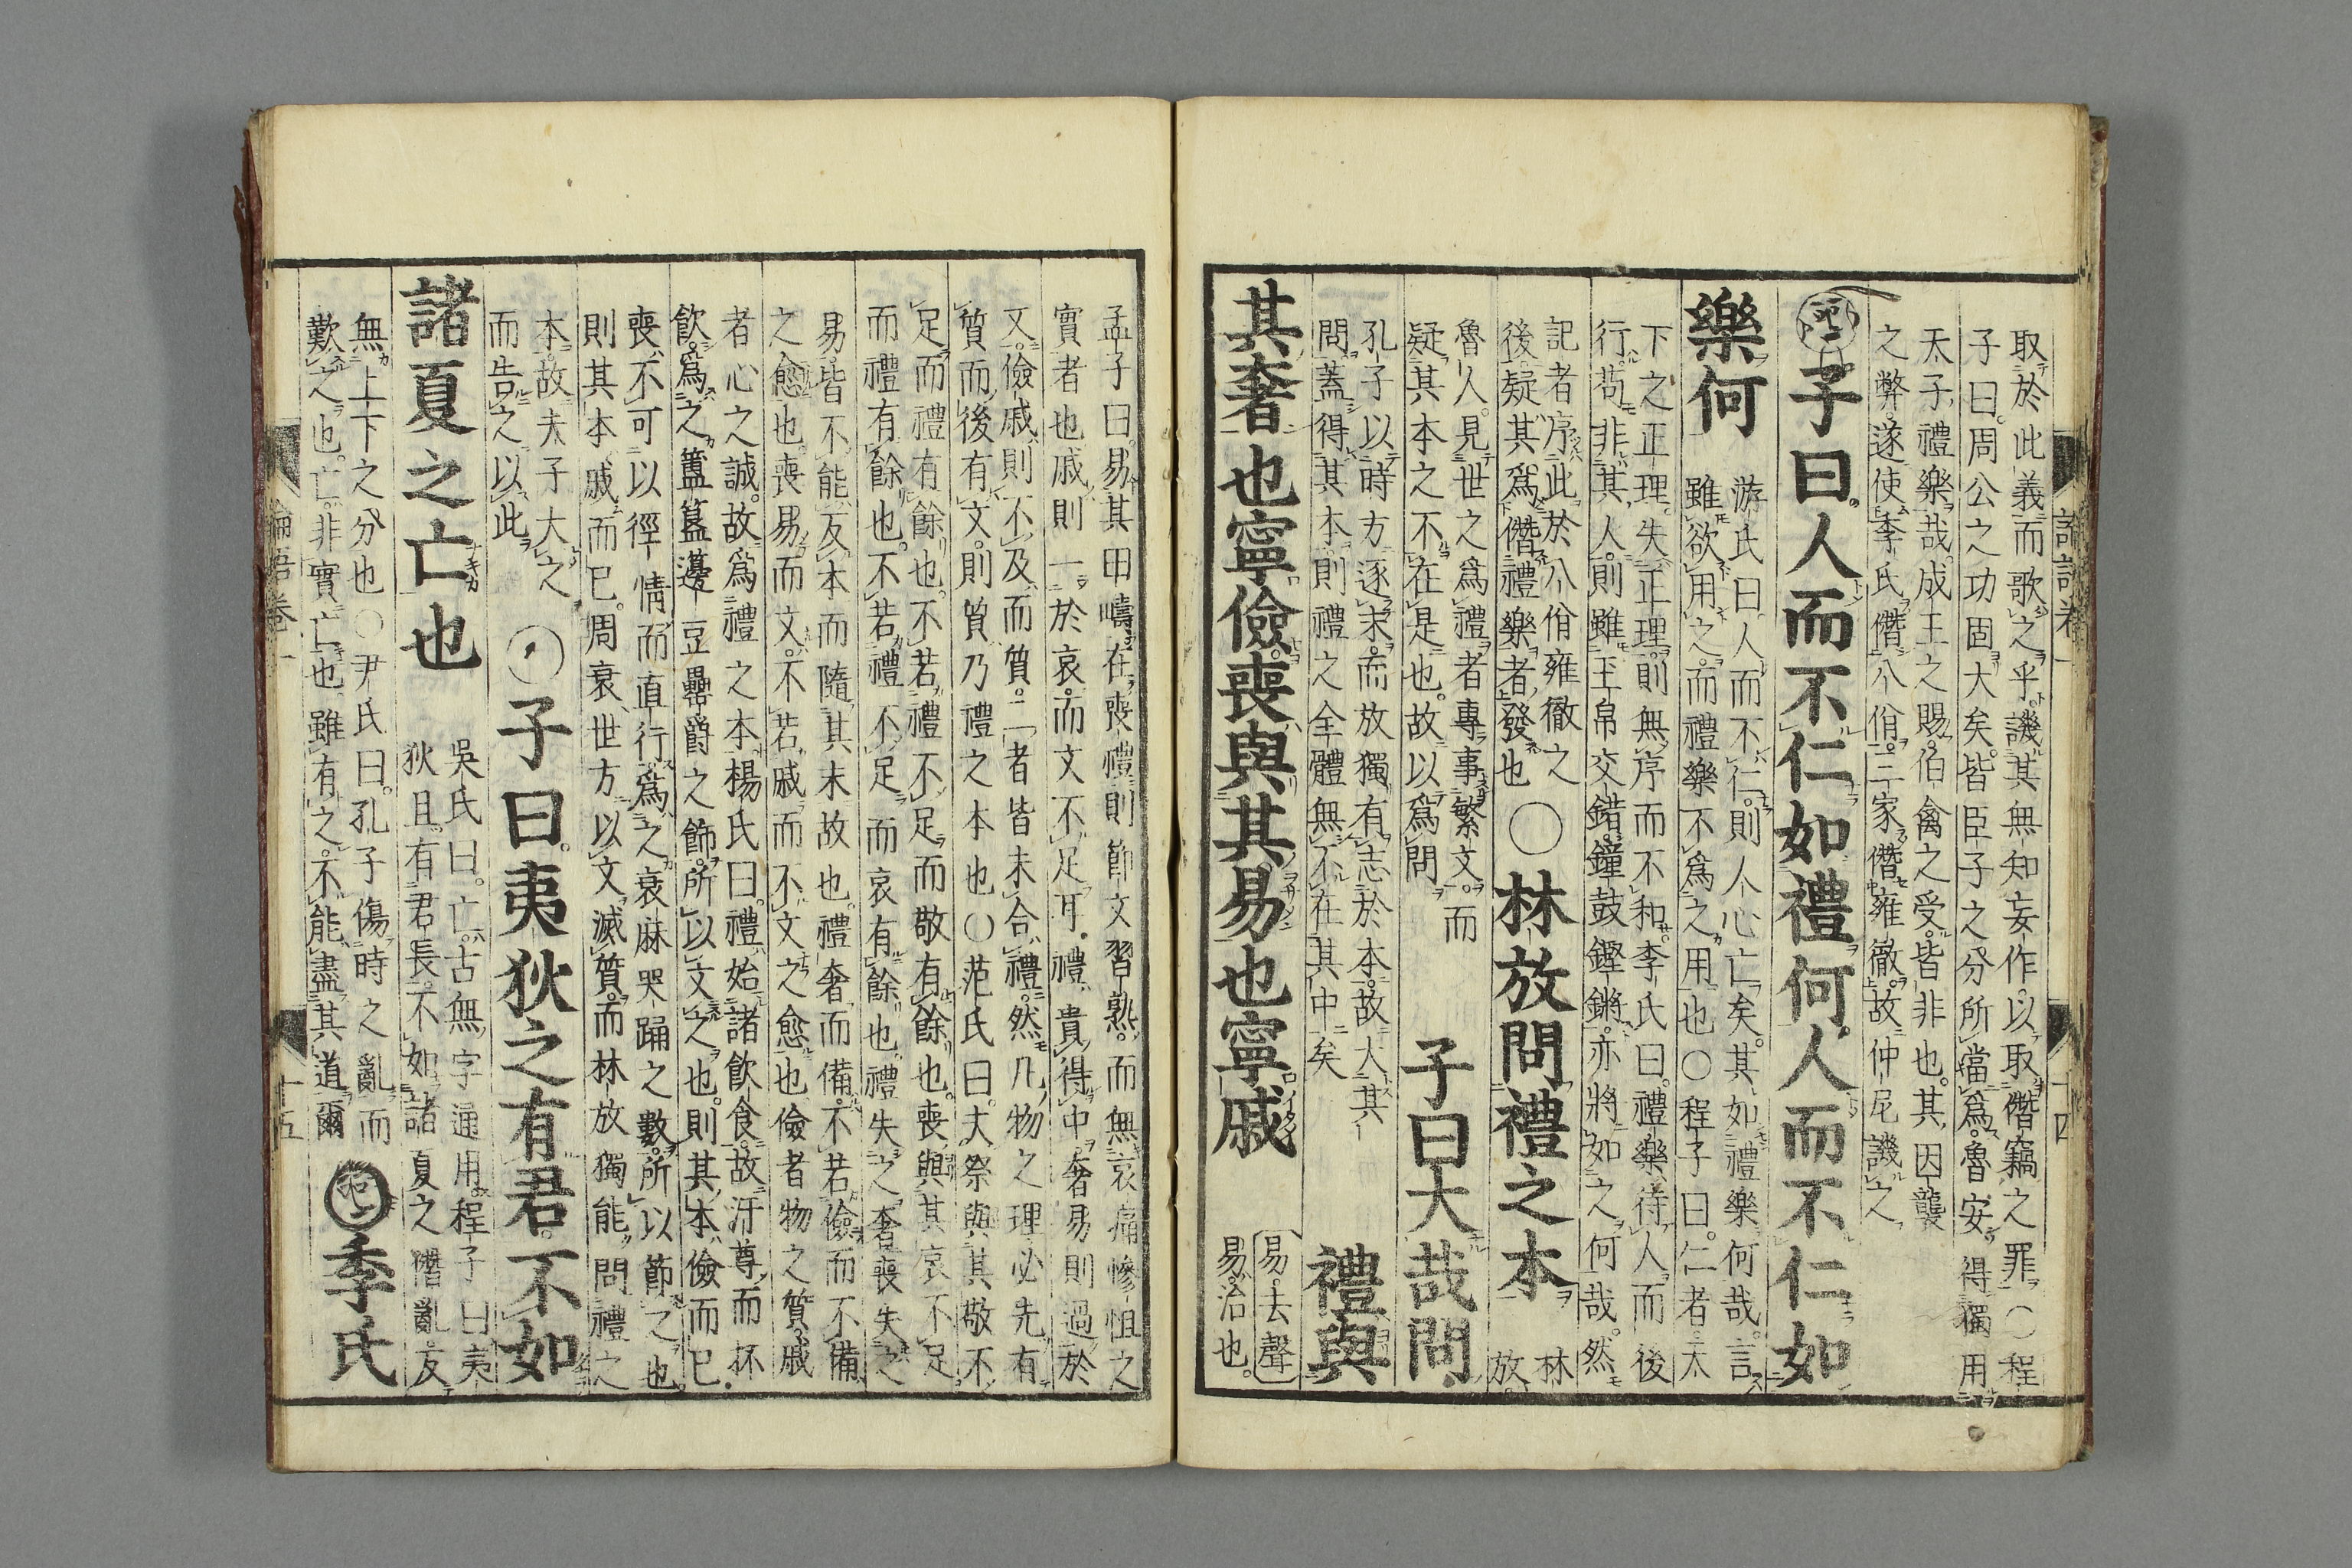 取於此義而歌之乎譏其無知妄作以取僭竊之罪○程
子曰周公之功固大矣皆臣子之分所當爲魯安得獨用
天子禮樂哉成王之賜伯禽之受皆非也其因襲
之弊遂使季氏僭八佾三家僭雍徹故仲尼譏之
子曰人而不仁如禮何人而不仁如
樂何
游氏曰人而不仁則人心亡矣其如禮樂何哉言
雖欲用之而禮樂不爲之用也○程子曰仁者天
下之正理失正理則無序而不和李氏曰禮樂待人而後
行苟非其人則雖玉帛交錯鐘鼓鏗鏘亦將如之何哉然
記者序此於八佾雍徹之
後疑其爲僭禮樂者發也
○林放問禮之本
林
放
魯人見世之爲禮者專事繁文而
疑其本之不在是也故以爲問
子曰大哉問
孔子以時方逐末而放獨有志於本故大其
問蓋得其本則禮之全體無不在其中矣
禮與
其奢也寧儉喪與其易也寧戚
易去聲
易治也
孟子曰易其田疇在喪禮則節文習熟而無哀痛慘怛之
實者也戚則一於哀而文不足耳禮貴得中奢易則過於
文儉戚則不及而質二者皆未合禮然凡物之理必先有
質而後有文則質乃禮之本也○范氏曰夫祭與其敬不
足而禮有餘也不若禮不足而敬有餘也喪與其哀不足
而禮有餘也不若禮不足而哀有餘也禮失之奢喪失之
易皆不能反本而隨其末故也禮奢而備不若儉而不備
之愈也喪易而文不若戚而不文之愈也儉者物之質戚
者心之誠故爲禮之本楊氏曰禮始諸飲食故汙尊而抔
飲爲之簠簋籩豆罍爵之飾所以文之也則其本儉而已
喪不可以徑情而直行爲之衰麻哭踊之數所以節之也
則其本戚而已周衰世方以文滅質而林放獨能問禮之
本故夫子大之
而告之以此
○子曰夷狄之有君不如
諸夏之亡也
吳氏曰亡古無字通用程子曰夷
狄且有君長不如諸夏之僭亂反
無上下之分也○尹氏曰孔子傷時之亂而
歎之也亡非實亡也雖有之不能盡其道爾
季氏